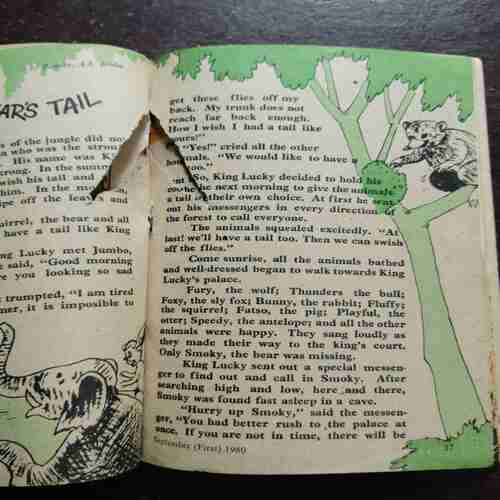 AR'S TAIL
s of the jungle did no
n who was the stron
His name was Kin
rong. In the sum
wish his tail and
him. In the m
ipe off the leaves and
uirrel, the bear and all
have a tail like King
ng Lucky met Jumbo,
e said, "Good morning
re you looking so sad
trumpted, "I am tired
mer, it is imposible to
get these flies off my
back. My trunk does not
reach far back enough.
How I wish I had a tail like
yours!"
"Yes!" cried all the other
animals. "We would like to have a
too."
So, King Lucky decided to hold his
he next morning to give the animals
a tail of their own choice. At first he sent
out his messengers in every direction of
the forest to call everyone.
The animals squealed excitedly. "At
last! we'll have a tail too. Then we can swish
off the flies."
Come sunrise, all the animals bathed
and well-dressed began to walk towards King
Lucky's palace.
Fury, the wolf; Thunders the bull;
Foxy, the sly fox; Bunny, the rabbit; Fluffy;
the squirrel; Fatso, the pig; Playful, the
otter; Speedy, the antelope; and all the other
animals were happy. They sang loudly as
they made their way to the king's court.
Only Smoky, the bear was missing.
King Lucky sent out a special messen-
ger to find out and call in Smoky. After
searching high and low, here and there,
Smoky was found fast asleep in a cave.
"Hurry up Smoky," said the messen-
ger, "You had better rush to the palace at
once. If you are not in time, there will be
September (First) 1980
37